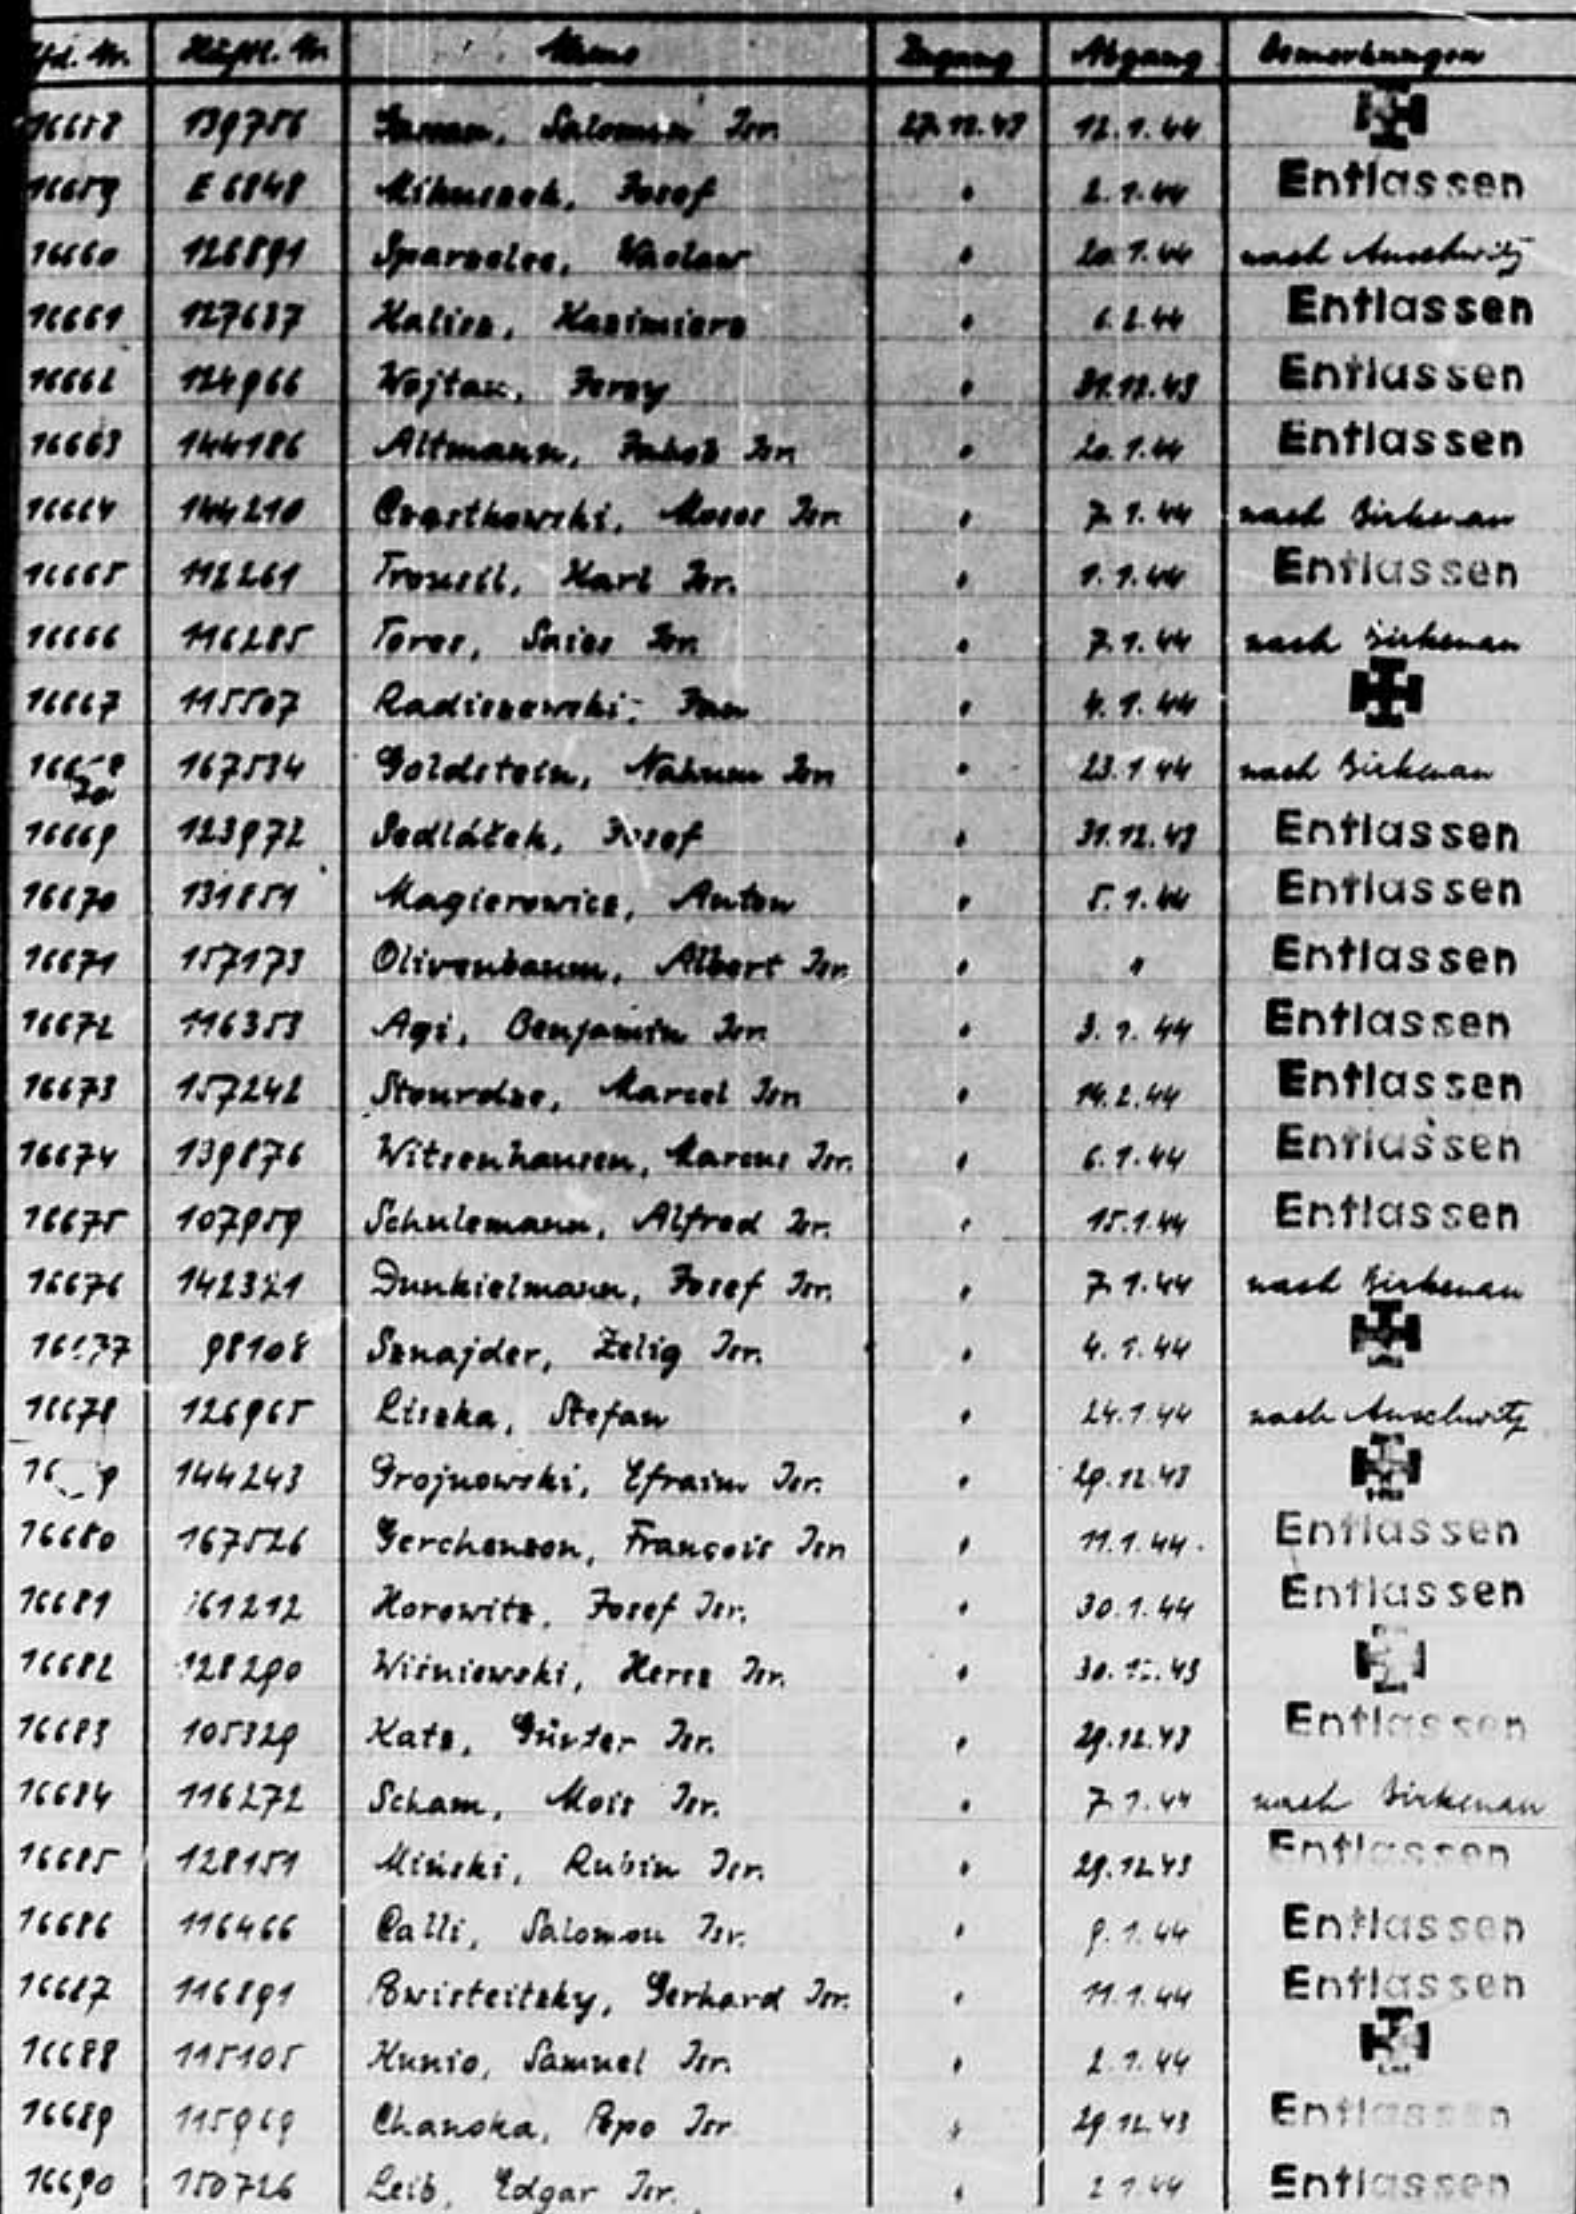 Lfd. Nr. Häftl. Nr. Name Zugang Abgang Bemerkungen
16658 139756 Salomon Isr. 27.12.43 12.1.44
16659 E 6848 Josef " 2.1.44 Entlassen
16660 126891 Waclaw " 20.1.44 nach Auschwitz
16661 127637 Kazimierz " 6.2.44 Entlassen
16662 124966 Jerzy " 31.12.43 Entlassen
16663 144186 Altmann, Jakob Isr. " 20.1.44 Entlassen
16664 144210 Moses Isr. " 7.1.44 nach Birkenau
16665 112261 Karl Isr. " 1.1.44 Entlassen
16666 116285 Isr. " 7.1.44 nach Birkenau
16667 115507 Radiszewski, Jan " 4.1.44
167534 Goldstein, Nahum Isr. " 23.1.44 nach Birkenau
16669 123972 Sedláček, Josef " 31.12.43 Entlassen
16670 131851 Magierowicz, Anton " 5.1.44 Entlassen
16671 157173 Olivenbaum, Albert Isr. " " Entlassen
16672 116353 Agi, Benjamin Isr. " 3.1.44 Entlassen
16673 157242 Stourdze, Marcel Isr. " 14.2.44 Entlassen
16674 139876 Witsenhausen, Marcus Isr. " 6.1.44 Entlassen
16675 107959 Schulemann, Alfred Isr. " 15.1.44 Entlassen
16676 142321 Dunkielmann, Josef Isr. " 7.1.44 nach Birkenau
16677 98108 Sznajder, Zelig Isr. " 4.1.44
16678 126965 Liszka, Stefan " 24.1.44 nach Auschwitz
144243 Grojnowski, Efraim Isr. " 29.12.43
16680 167526 Gerchenzon, François Isr. " 11.1.44. Entlassen
16681 161212 Horowitz, Josef Isr. " 30.1.44 Entlassen
16682 128290 Wiśniewski, Hersz Isr. " 30.12.43
16683 105329 Katz, Günter Isr. " 29.12.43 Entlassen
16684 116272 Scham, Mois Isr. " 7.1.44 nach Birkenau
16685 128151 Miński, Rubin Isr. " 29.12.43 Entlassen
16686 116466 Calli, Salomon Isr. " 9.1.44 Entlassen
16687 116891 Gerhard Isr. " 11.1.44 Entlassen
16688 115105 Kunio, Samuel Isr. " 2.1.44
16689 115969 Chanoka, Pepo Isr " 29.12.43 Entlassen
16690 150726 Leib, Edgar Isr. " 2.1.44 Entlassen